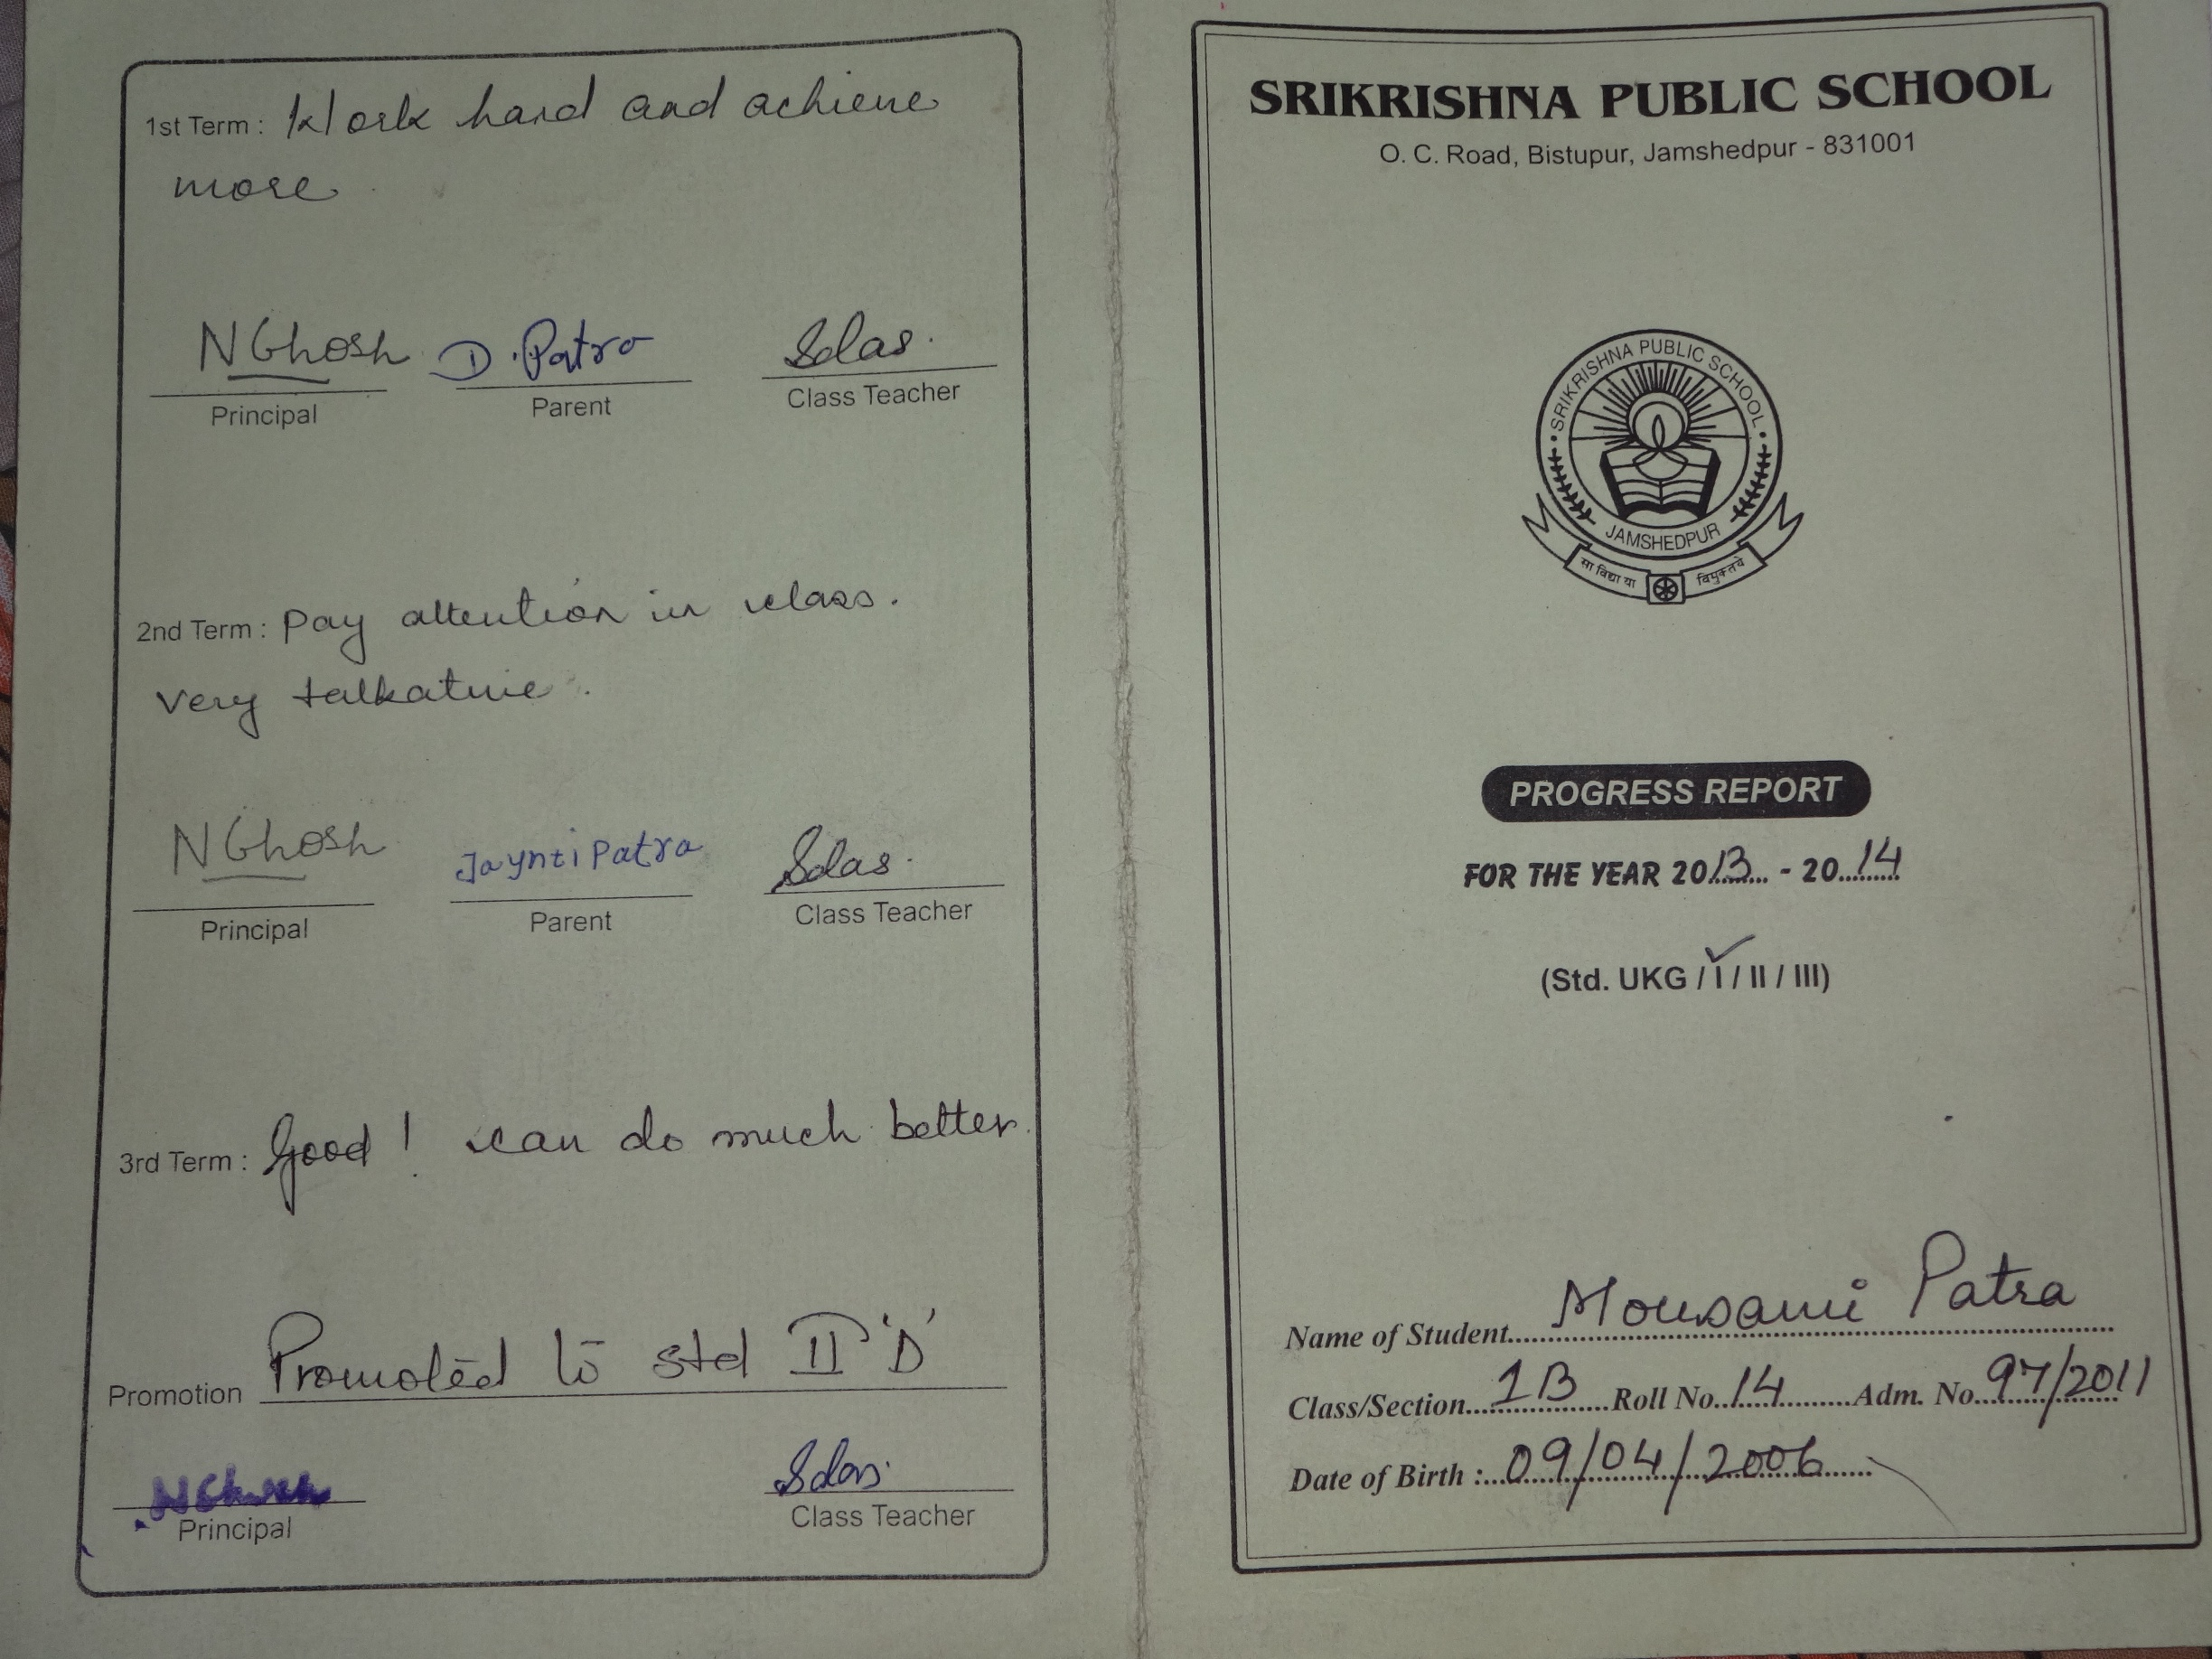 1st Term : Work hard and achieve
more
NGhosh D. Patra Sdas.
Principal Parent Class Teacher
2nd Term : Pay attention in class.
very talkative.
NGhosh Jaynti Patra Sdas.
Principal Parent Class Teacher
3rd Term : Good ! can do much better.
Promotion Promoted to std II 'D'
NGhosh Sdas.
Principal Class Teacher
SRIKRISHNA PUBLIC SCHOOL
O. C. Road, Bistupur, Jamshedpur - 831001
SRIKRISHNA PUBLIC SCHOOL
JAMSHEDPUR
सा विद्या या विमुक्तये
PROGRESS REPORT
FOR THE YEAR 2013 - 2014
(Std. UKG / I / II / III)
Name of Student Mousami Patra
Class/Section 1B Roll No. 14 Adm. No 97/2011
Date of Birth : 09/04/2006